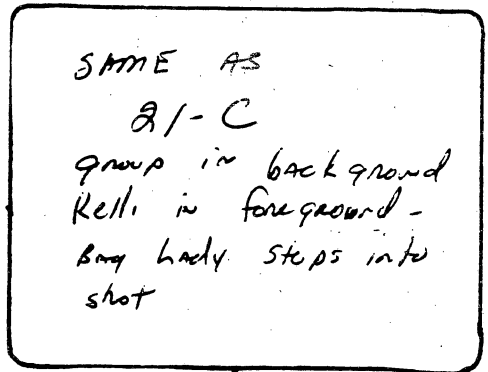 SAME AS
21-C
group in background
Kelli in foreground -
Bag Lady steps into
shot